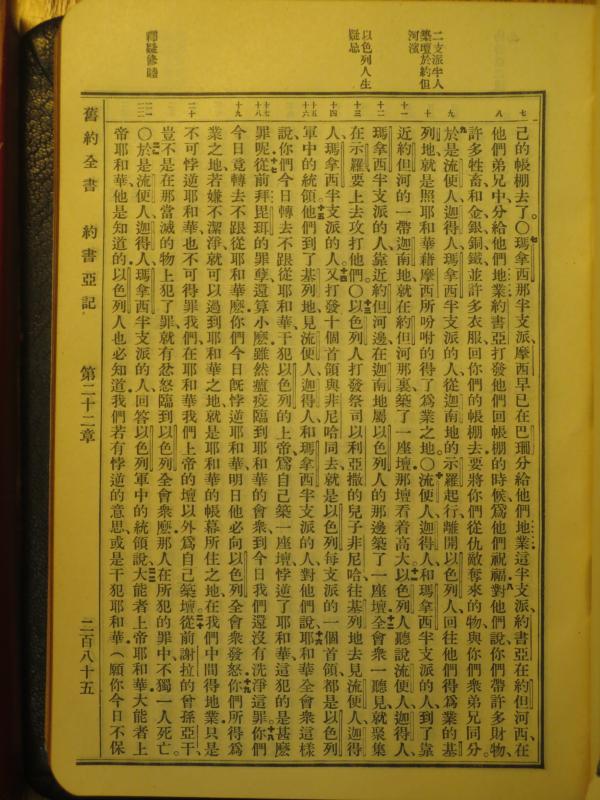 二支派半人
築壇於約但
河濱
以色列人生
疑忌
釋疑修睦
七
八
九
十
十一
十二
十三
十四
十五
十六
十七
十八
十九
二十
己的帳棚去了。〇七瑪拿西那半支派、摩西早已在巴珊分給他們地業、這半支派、約書亞在約但河西、在
他們弟兄中分給他們地業、約書亞打發他們回帳棚的時候、爲他們祝福、八對他們說、你們帶許多財物、
許多牲畜、和金銀銅鐵、並許多衣服、回你們的帳棚去、要將你們從仇敵奪來的物、與你們衆弟兄同分。
九於是流便人、迦得人、瑪拿西半支派的人、從迦南地的示羅起行、離開以色列人、回往他們得爲業的基
列地、就是照耶和華藉摩西所吩咐的、得了爲業之地。〇十流便人、迦得人、和瑪拿西半支派的人、到了靠
近約但河的一帶迦南地、就在約但河那裏築了一座壇、那壇看着高大。十一以色列人聽說流便人、迦得人、
瑪拿西半支派的人、靠近約但河邊、在迦南地屬以色列人的那邊、築了一座壇。十二全會衆一聽見、就聚集
在示羅、要上去攻打他們。〇十三以色列人打發祭司以利亞撒的兒子非尼哈、往基列地去見流便人、迦得
人、瑪拿西半支派的人。十四又打發十個首領與非尼哈同去、就是以色列每支派的一個首領、都是以色列
軍中的統領。十五他們到了基列地、見流便人、迦得人、和瑪拿西半支派的人、對他們說、十六耶和華全會衆這樣
說、你們今日轉去不跟從耶和華、干犯以色列的上帝、爲自己築一座壇、悖逆了耶和華、這犯的是甚麽
罪呢。十七從前拜毘珥的罪孽還算小麽、雖然瘟疫臨到耶和華的會衆、到今日我們還沒有洗淨這罪。十八你們
今日竟轉去不跟從耶和華麽、你們今日旣悖逆耶和華、明日他必向以色列全會衆發怒。十九你們所得爲
業之地、若嫌不潔淨、就可以過到耶和華之地、就是耶和華的帳幕所住之地、在我們中間得地業、只是
不可悖逆耶和華、也不可得罪我們、在耶和華我們上帝的壇以外、爲自己築壇。二十從前謝拉的曾孫亞干、
豈不是在那當滅的物上犯了罪、就有忿怒臨到以色列全會衆麽、那人在所犯的罪中、不獨一人死亡。
〇二一於是流便人、迦得人、瑪拿西半支派的人、回答以色列軍中的統領說、二二大能者上帝耶和華、大能者上
帝耶和華、他是知道的、以色列人也必知道、我們若有悖逆的意思、或是干犯耶和華、（願你今日不保
舊約全書　約書亞記　第二十二章　二百八十五